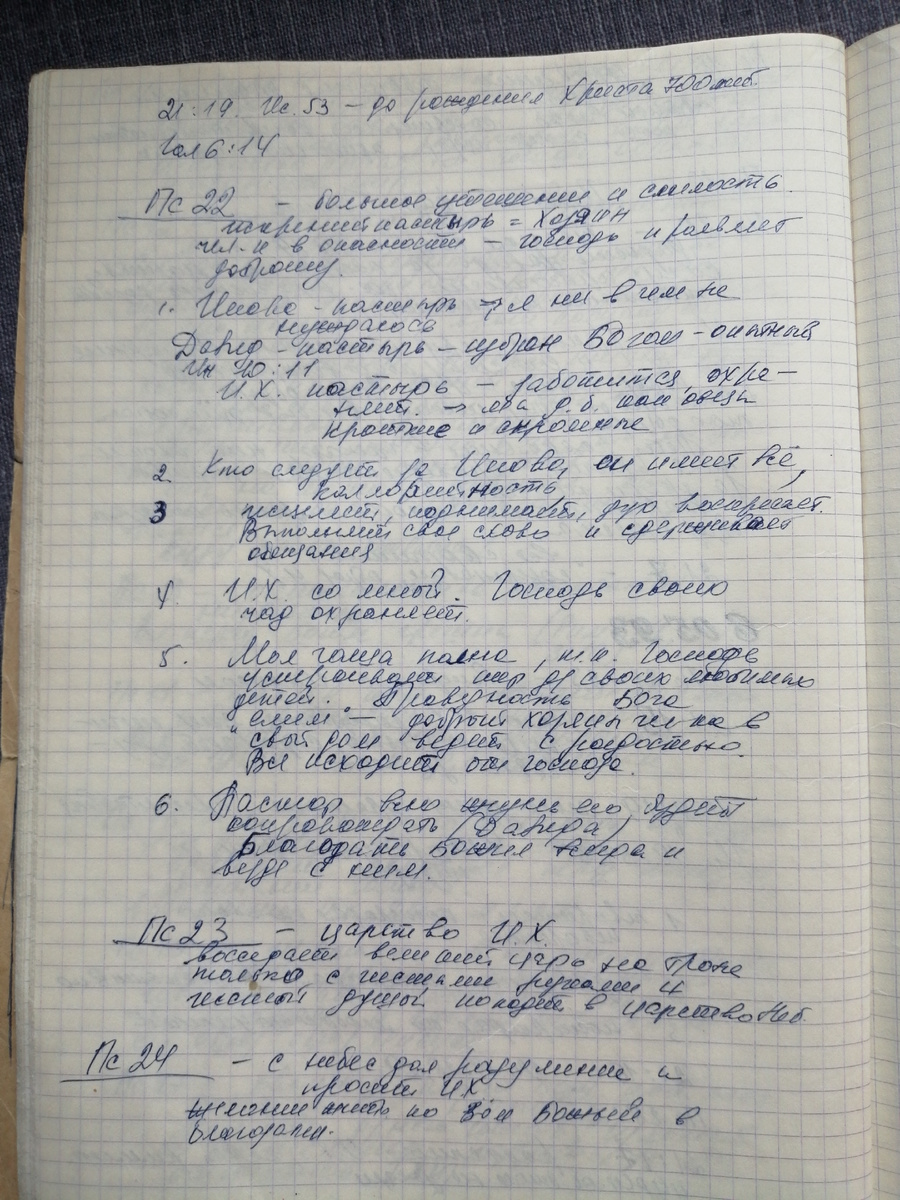 21:19. Ис. 53 – до рождения Христа 700 лет.
Гал 6:14
Пс 22 – большое утешение и смелость.
искренний пастырь = Хозяин
чел-к в опасности – господь направляет
доброму.
1. Иегова – пастырь → я ни в чем не
нуждалась
Давид – пастырь – избран Богом – опытный
Ин 10:11
И.Х. пастырь – заботится, охра-
няет. → мы д.б. как овцы
кроткие и скромные
2 Кто следует за Иеговой, он имеет всё,
3 исцеляет, поднимает, дух воскрешает.
Выполняет свое слово и сдерживает
обещания
4. И.Х. со мной. Господь своих
чад охраняет.
5. Моя чаша полна, т.к. Господь
устраивает пир для своих любимых
детей. Праведность Бога
"елеем" – добрый хозяин чел-ка в
свой дом ведет с радостью.
Все исходит от господа.
6. Пастор всю жизнь его будет
сопровождать (Давида)
Благодать Божия вчера и
везде с ним.
Пс 23 – царство И.Х.
восседает великий царь на троне
только с чистыми руками и
чистой душой попадет в царство Неб.
Пс 24 – с небес дал разумение и
просит ИХ
желание жить по Божьей в
благодати.